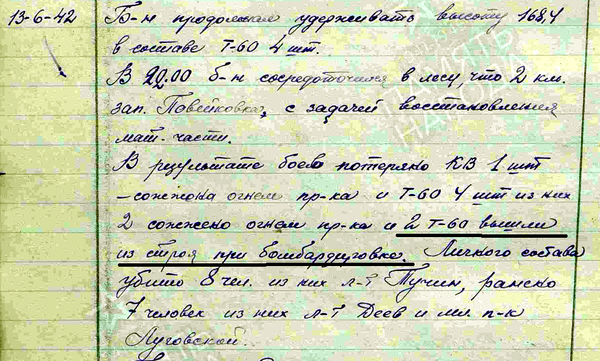 13-6-42 Б-н продолжал удерживать высоту 168,4
в составе Т-60 4 шт.
В 22.00 б-н сосредоточился в лесу, что 2 км.
зап. Павейковка, с задачей восстановления
мат-части.
В результате боев потеряно КВ 1 шт
-сожжена огнем пр-ка и Т-60 4 шт из них
2 сожжено огнем пр-ка и 2 Т-60 вышли
из строя при бомбардировке. Личного состава
убито 8 чел. из них л-т Тучин, ранено
7 человек из них л-т Деев и мл. п-к
Луговской.
ПАМЯТЬ
НАРОДА